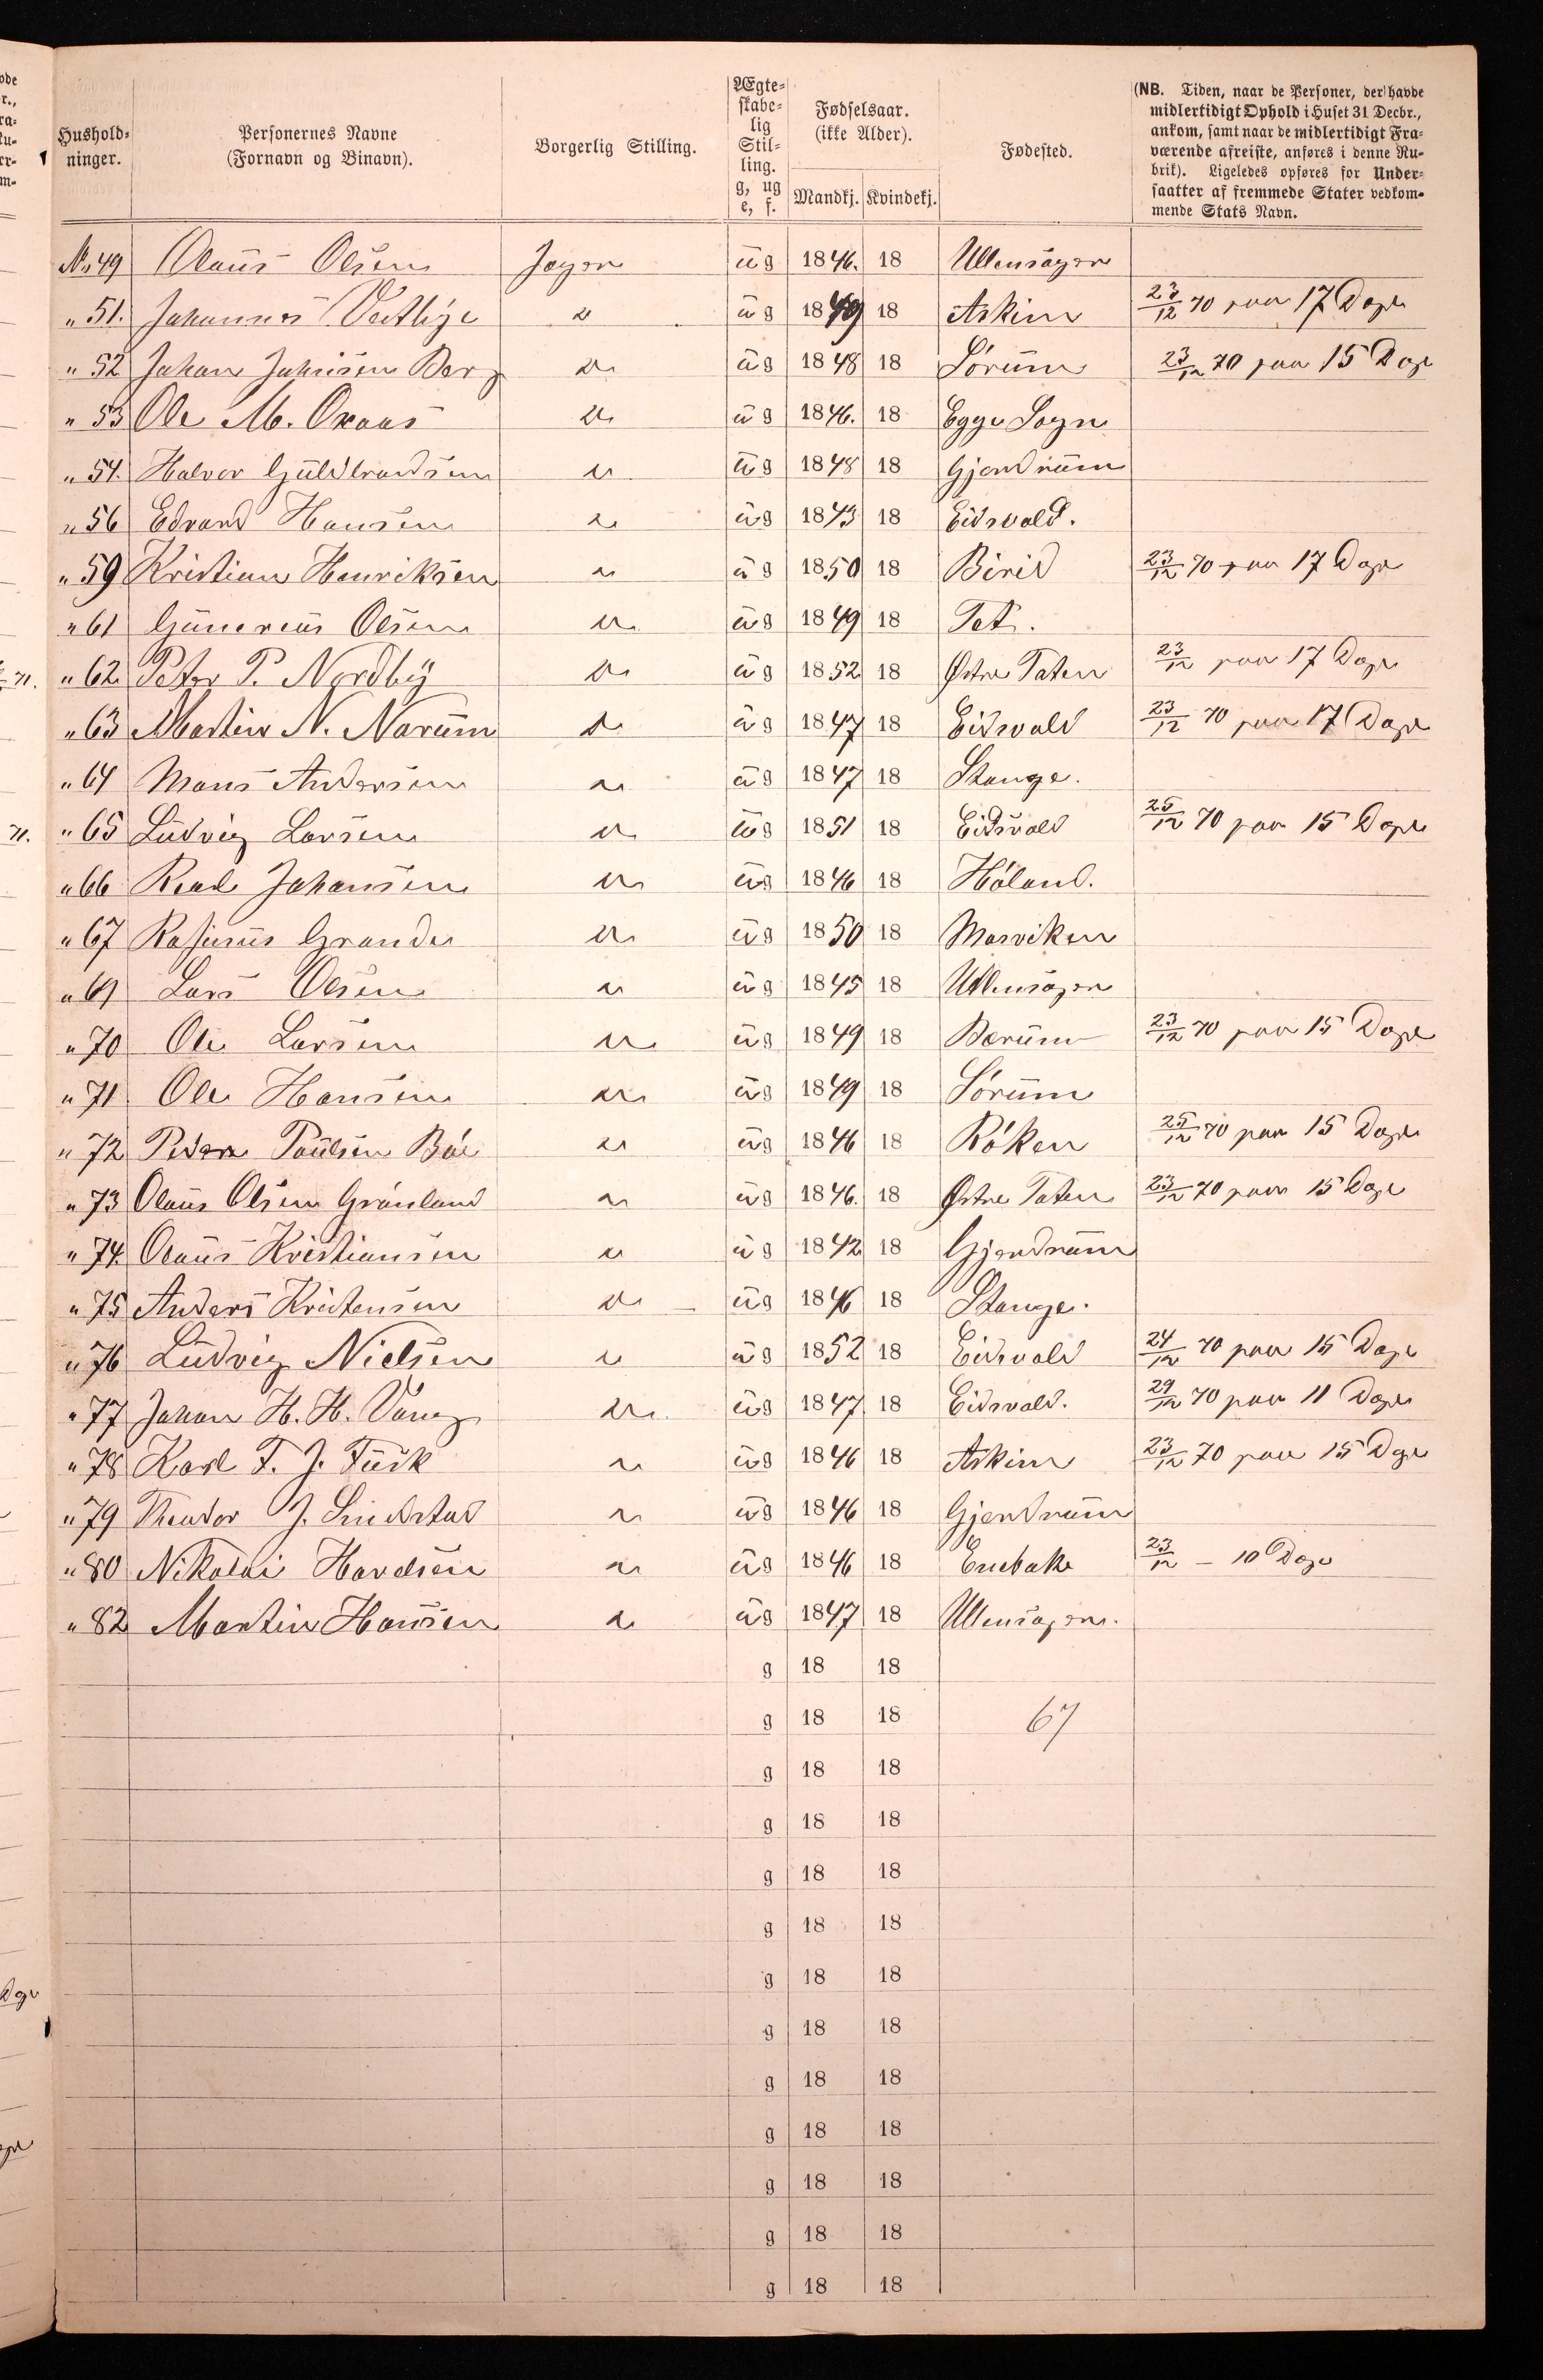 Hushold-
ninger.
Personernes Navne
(Fornavn og Binavn).
Borgerlig Stilling.
Ægte-
skabe-
lig
Stil-
ling.
g, ug
e, f.
Fødselsaar.
(ikke Alder).
Mandkj. Kvindekj.
Fødested.
(NB. Tiden, naar de Personer, der havde
midlertidigt Ophold i Huset 31 Decbr.,
ankom, samt naar de midlertidigt Fra-
værende afreiste, anføres i denne Ru-
brik). Ligeledes opføres for Under-
saatter af fremmede Stater vedkom-
mende Stats Navn.
No 49 Olaus Olsen Jæger ug 1846. 18 Ullensager
" 51. Johannes ug 1849 18 Askim 23/12 70 paa 17 Dage
" 52 Johan Johnsen Berg ug 1848 18 Sørum 23/12 70 paa 15 Dage
" 53 Ole M. ug 1846. 18 Egge Sogn
" 54. Halvor Guldbrandsen ug 1848 18 Gjerdrum
" 56 Edvard Hansen ug 1843 18 Eidsvold.
" 59 Kristian Henriksen ug 1850 18 Birid 23/12 70 paa 17 Dage
" 61 Gunerius Olsen ug 1849 18
" 62 Peter P. Nordby ug 1852 18 Østre Toten 23/12 paa 17 Dage
" 63 Martin N. Narum ug 1847 18 Eidsvold 23/12 70 paa 17 Dage
" 64 Mons Andersen ug 1847 18 Stange.
" 65 Ludvig Larsen ug 1851 18 Eidsvold 25/12 70 paa 15 Dage
" 66 Johansen ug 1846 18 Høland.
" 67 Rasmus Grande ug 1850 18 Mosviken
" 69 Lars Olsen ug 1845 18 Ullensager
" 70 Ole Larsen ug 1849 18 Bærum 23/12 70 paa 15 Dage
" 71 Ole Hansen ug 1849 18 Sørum
" 72 Peder Paulsen Bøe ug 1846 18 Røken 25/12 70 paa 15 Dage
" 73 Olaus Olsen Grønland ug 1846. 18 Østre Toten 23/12 70 paa 15 Dage
" 74. Olaus Kristiansen ug 1842 18 Gjerdrum
" 75 Anders Kristensen ug 1846 18 Stange.
" 76 Ludvig Nielsen ug 1852 18 Eidsvold 24/12 70 paa 15 Dage
" 77 Johan H. H. Vang ug 1847 18 Eidsvold. 29/12 70 paa 11 Dage
" 78 Karl F. J. Fusk ug 1846 18 Askim 23/12 70 paa 15 Dage
" 79 Theodor J. Lindstad ug 1846 18 Gjerdrum
" 80 Nikolai ug 1846 18 Enebak 23/12 - 10 Dage
" 82 Martin Hansen ug 1847 18 Ullensager.
g 18 18
g 18 18 67
g 18 18
g 18 18
g 18 18
g 18 18
g 18 18
g 18 18
g 18 18
g 18 18
g 18 18
g 18 18
g 18 18